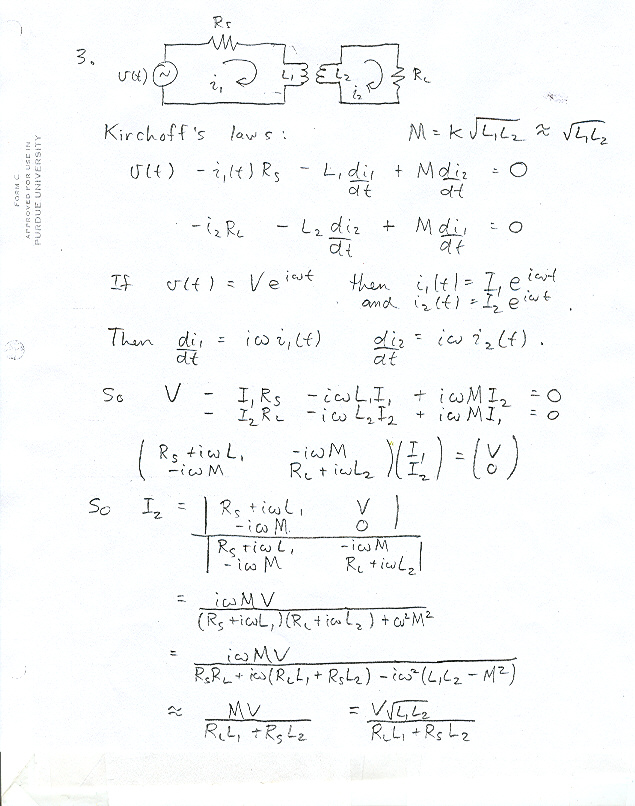 FORM C
APPROVED FOR USE IN
PURDUE UNIVERSITY
3.
Rs
v(t) ~ i₁ L₁ L₂ i₂ R_L
Kirchoff's laws: M = k √L₁L₂ ≈ √L₁L₂
v(t) - i₁(t) Rs - L₁ di₁/dt + M di₂/dt = 0
-i₂R_L - L₂ di₂/dt + M di₁/dt = 0
If v(t) = V e^{iωt} then i₁(t) = I₁ e^{iωt}
and i₂(t) = I₂ e^{iωt}.
Then di₁/dt = iω i₁(t) di₂/dt = iω i₂(t).
So V - I₁Rs - iωL₁I₁ + iωMI₂ = 0
- I₂R_L - iωL₂I₂ + iωMI₁ = 0
( Rs + iωL₁ -iωM ) ( I₁ ) = ( V )
( -iωM R_L + iωL₂ ) ( I₂ ) ( 0 )
So I₂ = | Rs + iωL₁ V |
| -iωM 0 |
| Rs + iωL₁ -iωM |
| -iωM R_L + iωL₂ |
= iωMV / (Rs + iωL₁)(R_L + iωL₂) + ω²M²
= iωMV / RsR_L + iω(R_LL₁ + RsL₂) - iω²(L₁L₂ - M²)
≈ MV / R_LL₁ + RsL₂ = V√L₁L₂ / R_LL₁ + RsL₂